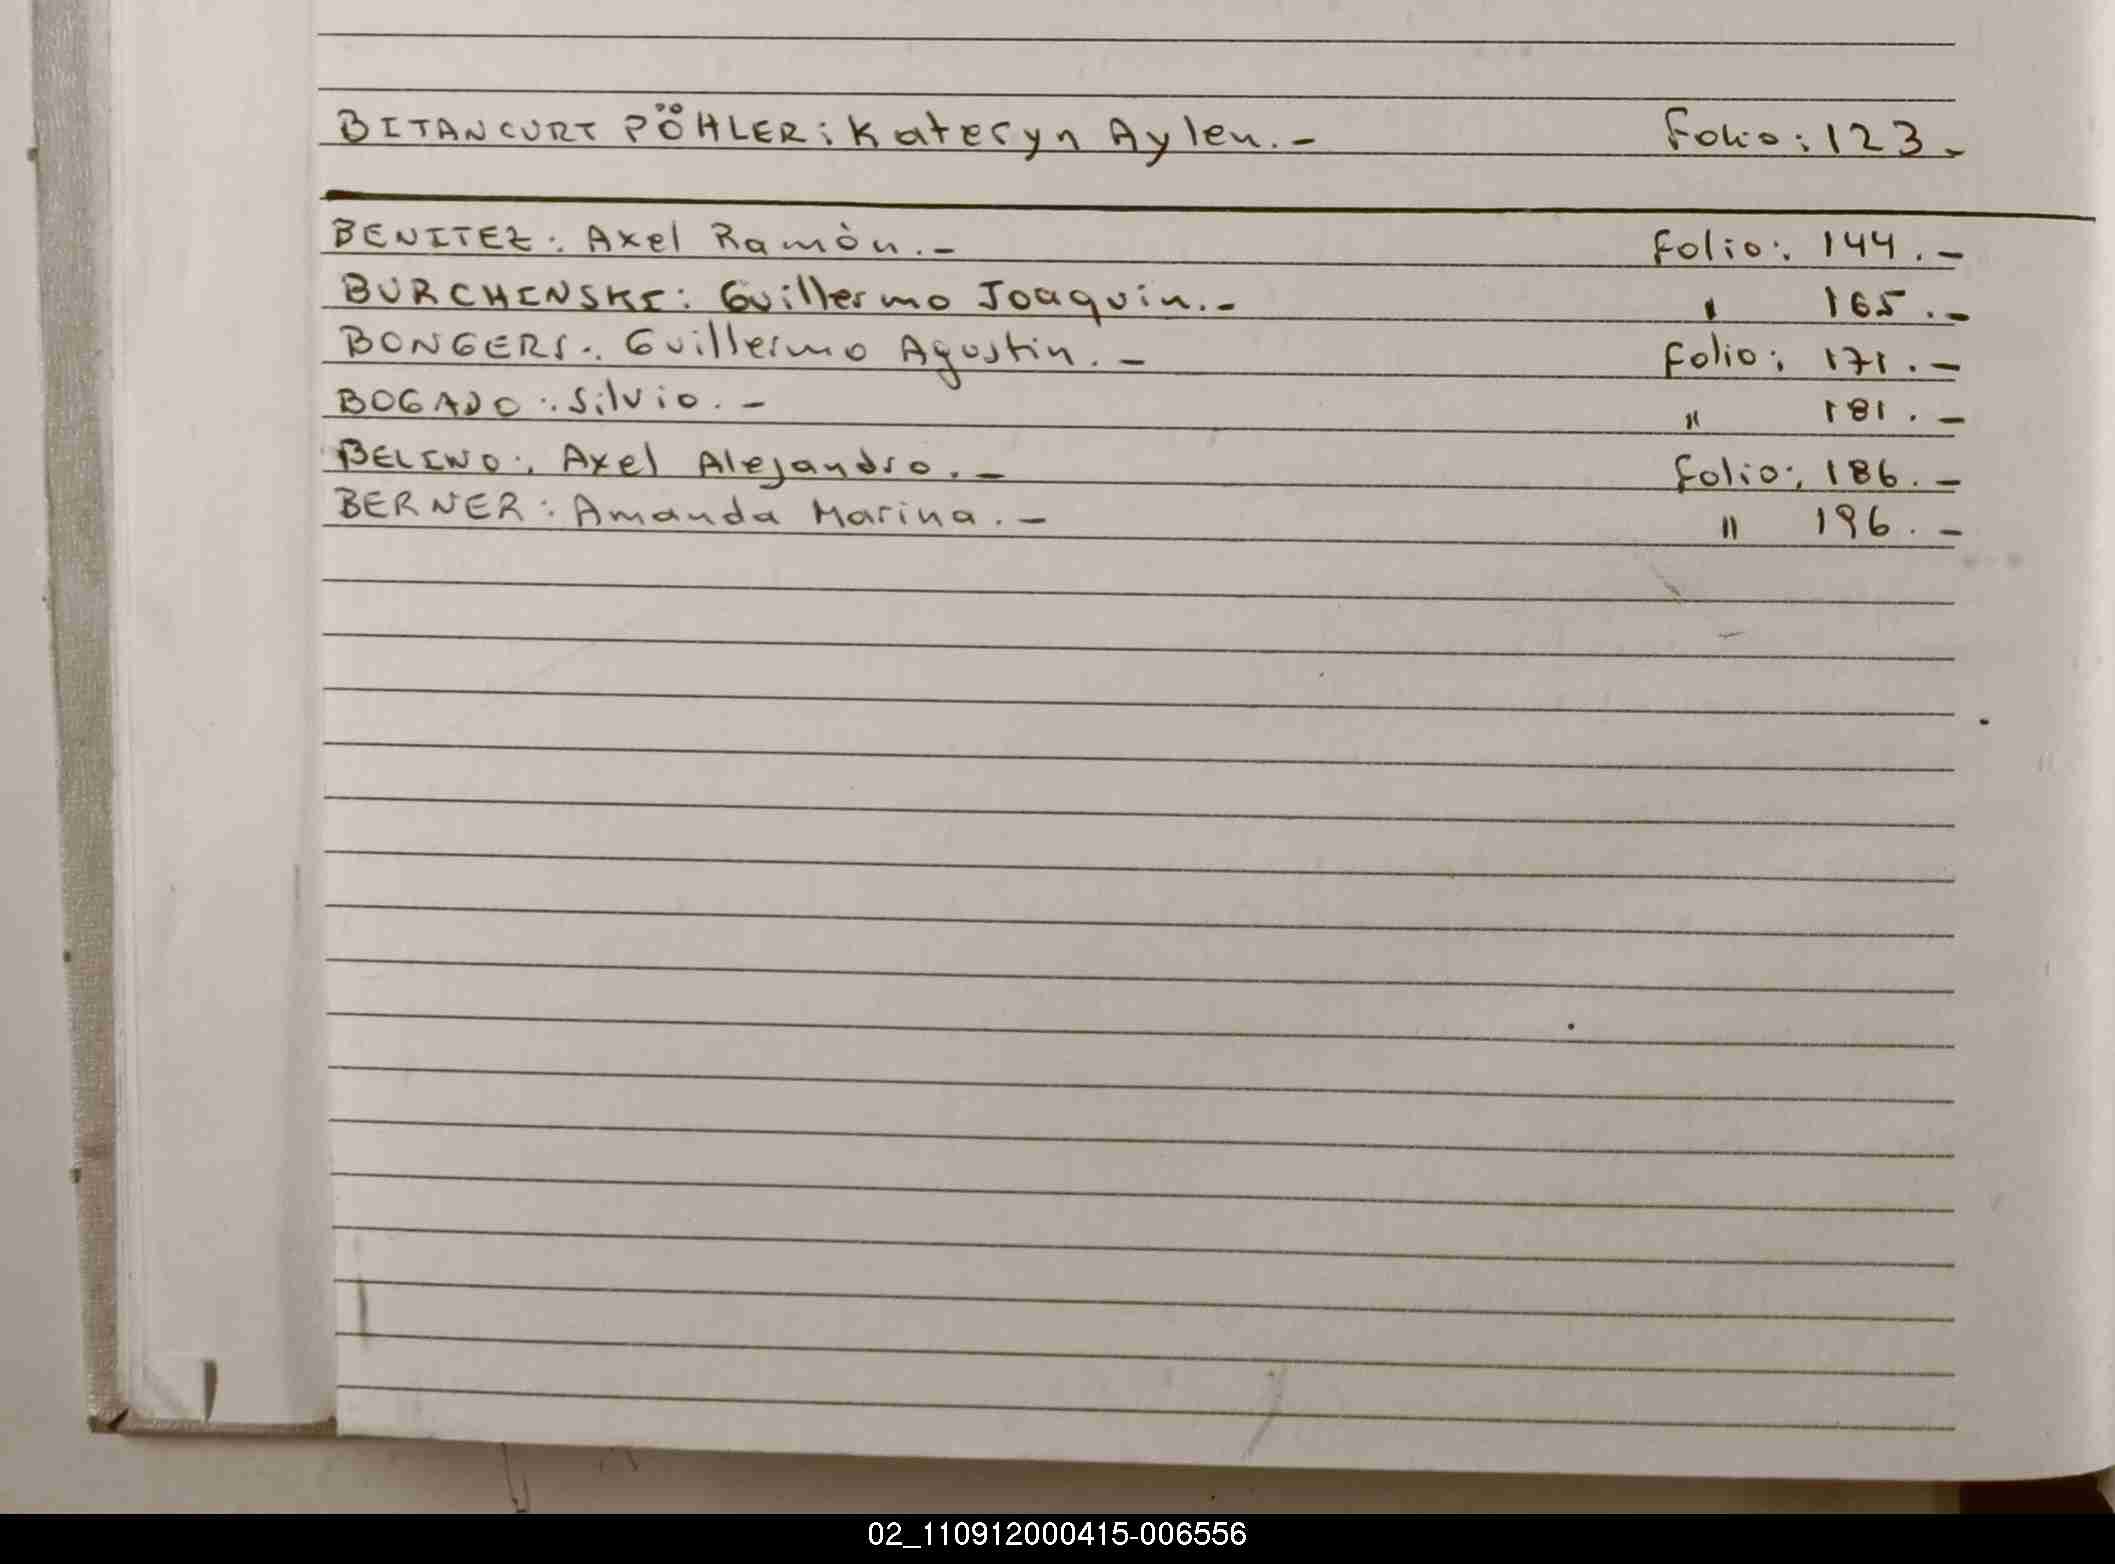 BITANCURT PÖHLER: Kateryn Aylen.- Folio: 123.-
BENITEZ: Axel Ramòn.- Folio: 144.-
BURCHINSKI: Guillermo Joaquin.- " 165.-
BONGERS: Guillermo Agustin.- Folio: 171.-
BOGADO: Silvio.- " 181.-
BELINO: Axel Alejandro.- Folio: 186.-
BERNER: Amanda Marina.- " 196.-
02_110912000415-006556